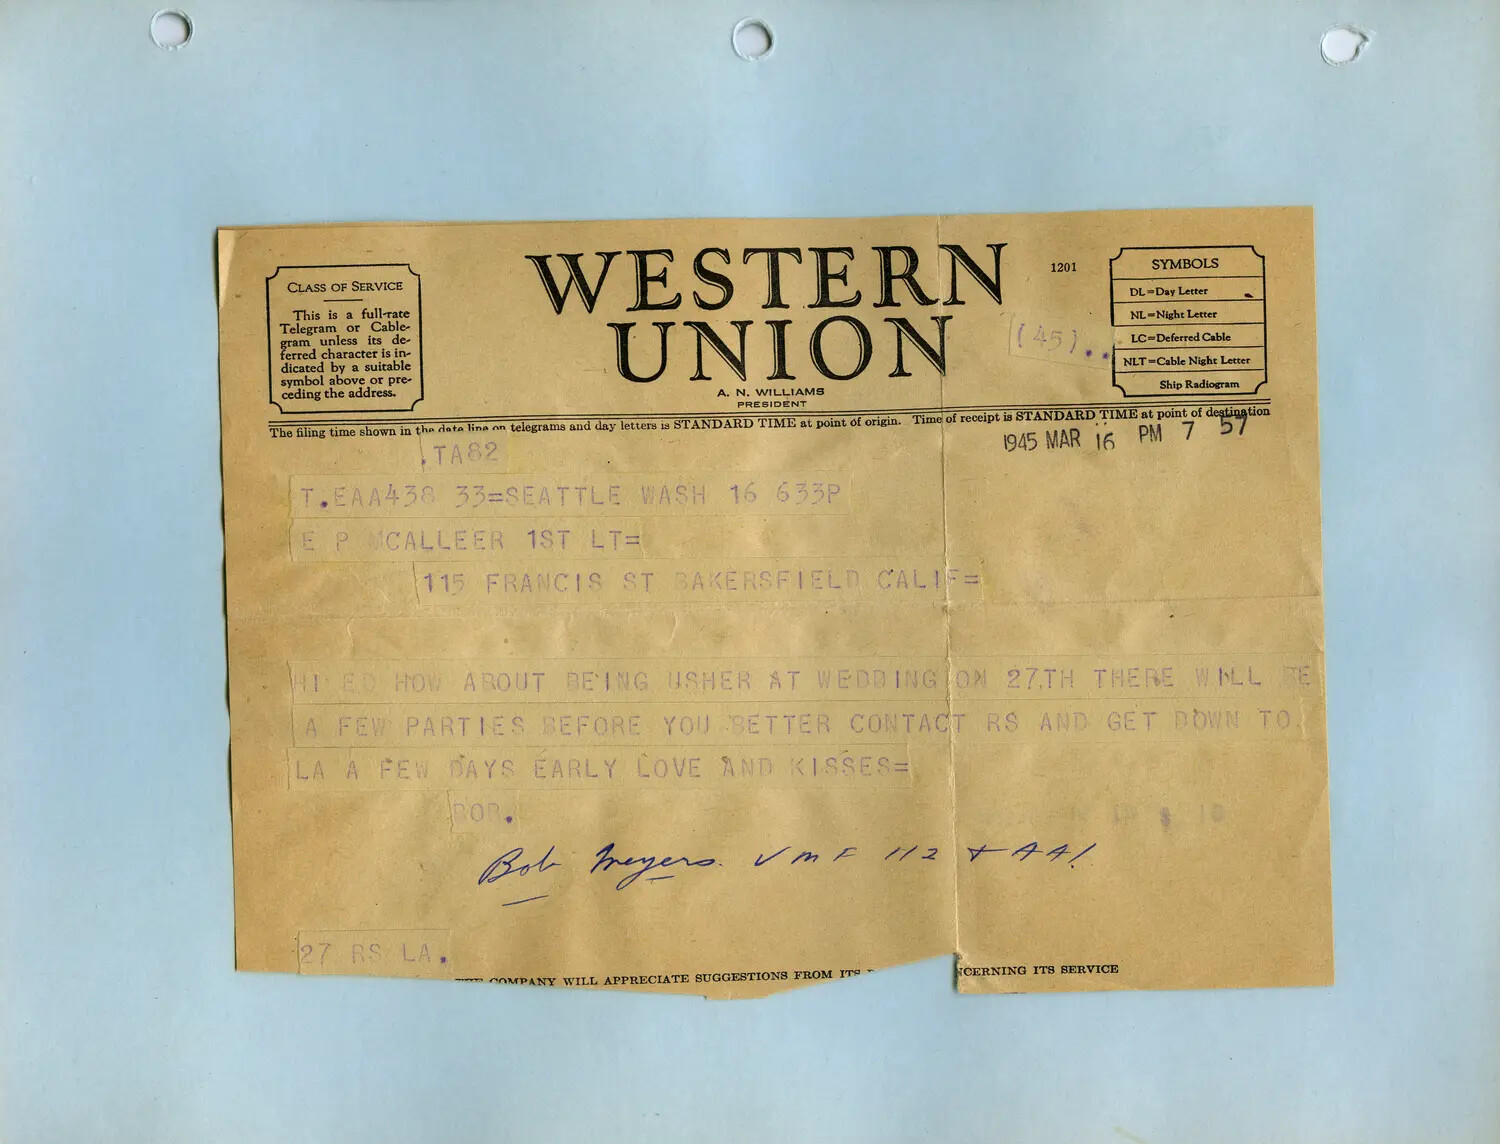 WESTERN
UNION
A. N. WILLIAMS
PRESIDENT
1201
CLASS OF SERVICE
This is a full-rate
Telegram or Cable-
gram unless its de-
ferred character is in-
dicated by a suitable
symbol above or pre-
ceding the address.
SYMBOLS
DL=Day Letter
NL=Night Letter
LC=Deferred Cable
NLT=Cable Night Letter
Ship Radiogram
(45)..
The filing time shown in the date line on telegrams and day letters is STANDARD TIME at point of origin. Time of receipt is STANDARD TIME at point of destination
1945 MAR 16 PM 7 57
.TA82
T.EAA438 33=SEATTLE WASH 16 633P
E P MCALLEER 1ST LT=
115 FRANCIS ST BAKERSFIELD CALIF=
HI ED HOW ABOUT BEING USHER AT WEDDING ON 27.TH THERE WILL BE
A FEW PARTIES BEFORE YOU BETTER CONTACT RS AND GET DOWN TO
LA A FEW DAYS EARLY LOVE AND KISSES=
BOB.
Bob Meyers. VMF 112 + AA!
27 RS LA.
COMPANY WILL APPRECIATE SUGGESTIONS FROM ITS NCERNING ITS SERVICE